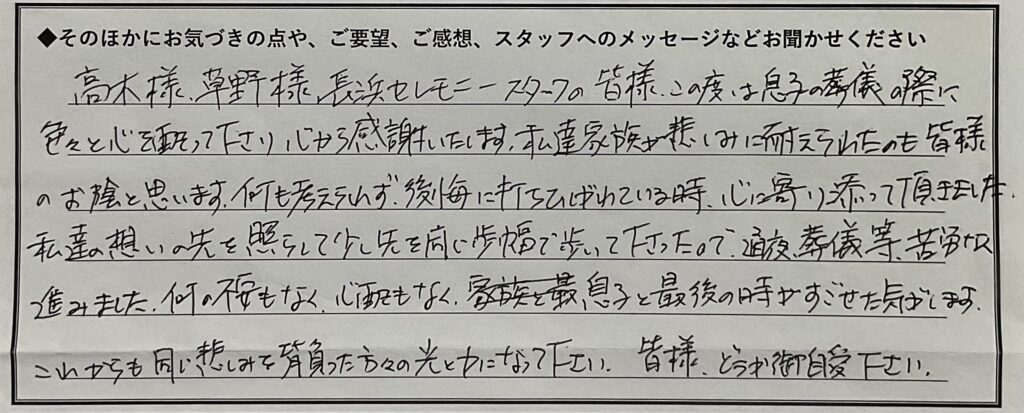 ◆そのほかにお気づきの点や、ご要望、ご感想、スタッフへのメッセージなどお聞かせください
高木様、草野様、長浜セレモニースタッフの皆様、この度は息子の葬儀の際に
色々と心を配って下さり心から感謝いたします。私達家族が悲しみに耐えられたのも皆様
のお陰と思います。何も考えられず、後悔に打ちひしがれている時、心に寄り添って頂きました。
私達の想いの先を照らして少し先を同じ歩幅で歩いて下さったので、通夜、葬儀等、苦労なく
進みました。何の不安もなく、心配もなく、家族と最息子と最後の時がすごせた気がします。
これからも同じ悲しみを背負った方々の光と力になって下さい。皆様、どうか御自愛下さい。